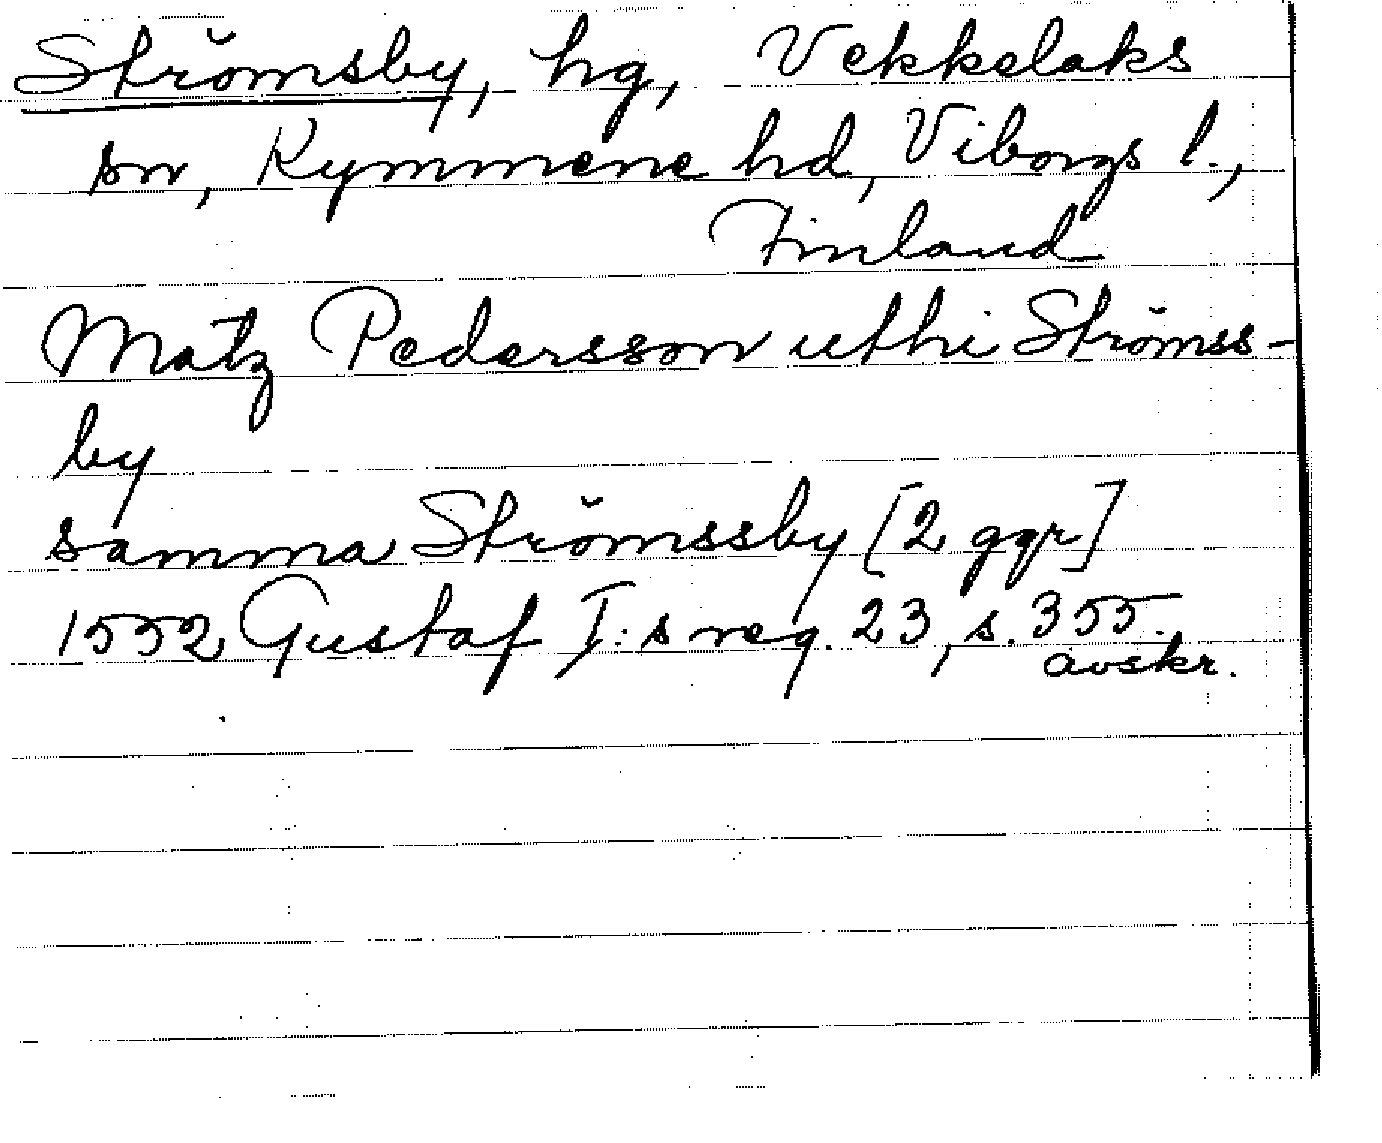 Strömsby, hg, Vekkelaks
sn, Kymmene hd, Viborgs l.,
Finland
Matz Pedersson uthi Strömss-
by
samma Strömssby [2 ggr]
1552 Gustaf I:s reg. 23, s. 355.
avskr.